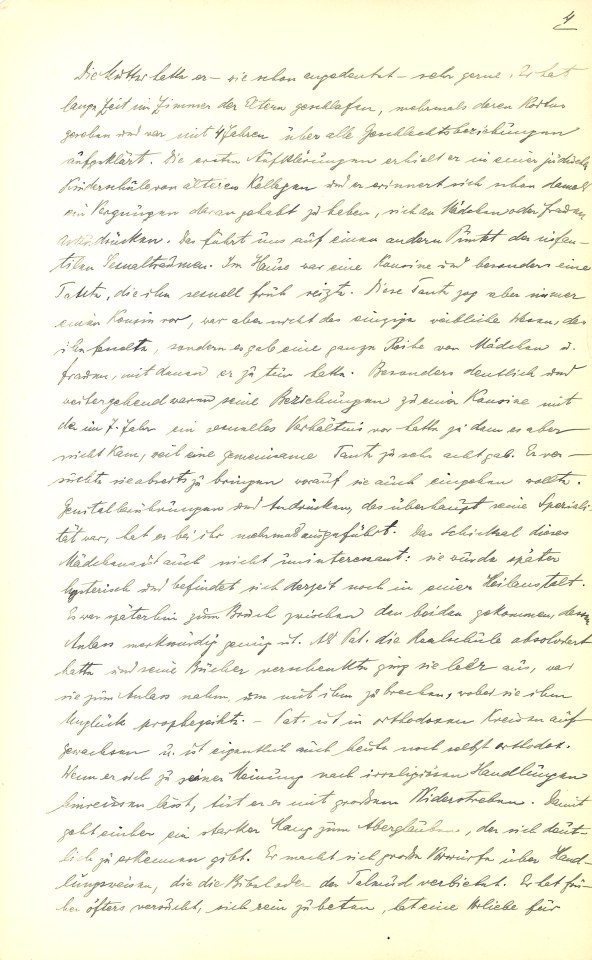 4
Die Mutter hatte er – wie schon angedeutet – sehr gerne. Er hat
lange Zeit im Zimmer der Eltern geschlafen, mehrmals deren Koitus
gesehen und war mit 4 Jahren über alle Geschlechtsbeziehungen
aufgeklärt. Die ersten Aufklärungen erhielt er in einer jüdischen
Kinderschule von älteren Kollegen und er erinnert sich schon damals
ein Vergnügen daran gehabt zu haben, sich an Mädchen oder Frauen
anzudrücken. Das führt uns auf einen andern Punkt des infan-
tilen Sexualtraumen. Im Hause war eine Kousine und besonders eine
Tante, die ihn sexuell früh reizte. Diese Tante zog aber immer
einen Kousin vor, war aber nicht das einzige weibliche Wesen, das
ihn fesselte, sondern es gab eine ganze Reihe von Mädchen u.
Frauen, mit denen er zu tun hatte. Besonders deutlich und
weitergehend waren seine Beziehungen zu einer Kousine mit
der im 7. Jahr ein sexuelles Verhältnis vor hatte zu dem es aber
nicht kam, weil eine gemeinsame Tante zu sehr acht gab. Er ver-
suchte sie abseits zu bringen worauf sie auch eingehen wollte.
Genitalberührungen und Andrücken, das überhaupt seine Speziali-
tät war, hat er bei ihr mehrmals ausgeführt. Das Schicksal dieses
Mädchens ist auch nicht uninteressant: sie wurde später
hysterisch und befindet sich derzeit noch in einer Heilanstalt.
Es war späterhin zum Bruch zwischen den beiden gekommen, dessen
Anlass merkwürdig genug ist. Als Pat. die Realschule absolviert
hatte und seine Bücher verschenkte ging sie leer aus, was
sie zum Anlass nahm, um mit ihm zu brechen, wobei sie ihm
Unglück prophezeihte. – Pat. ist in orthodoxen Kreisen auf
gewachsen u. ist eigentlich auch heute noch selbst orthodox.
Wenn er sich zu seiner Meinung nach irreligiösen Handlungen
hinreissen lässt, tut er es mit großem Widerstreben. Damit
geht einher ein starker Hang zum Aberglauben, der sich deut-
lich zu erkennen gibt. Er macht sich große Vorwürfe über Hand-
lungsweisen, die die Bibel oder der Talmud verbietet. Er hat frü-
her öfters versucht, sich rein zu beten, hat eine Vorliebe für